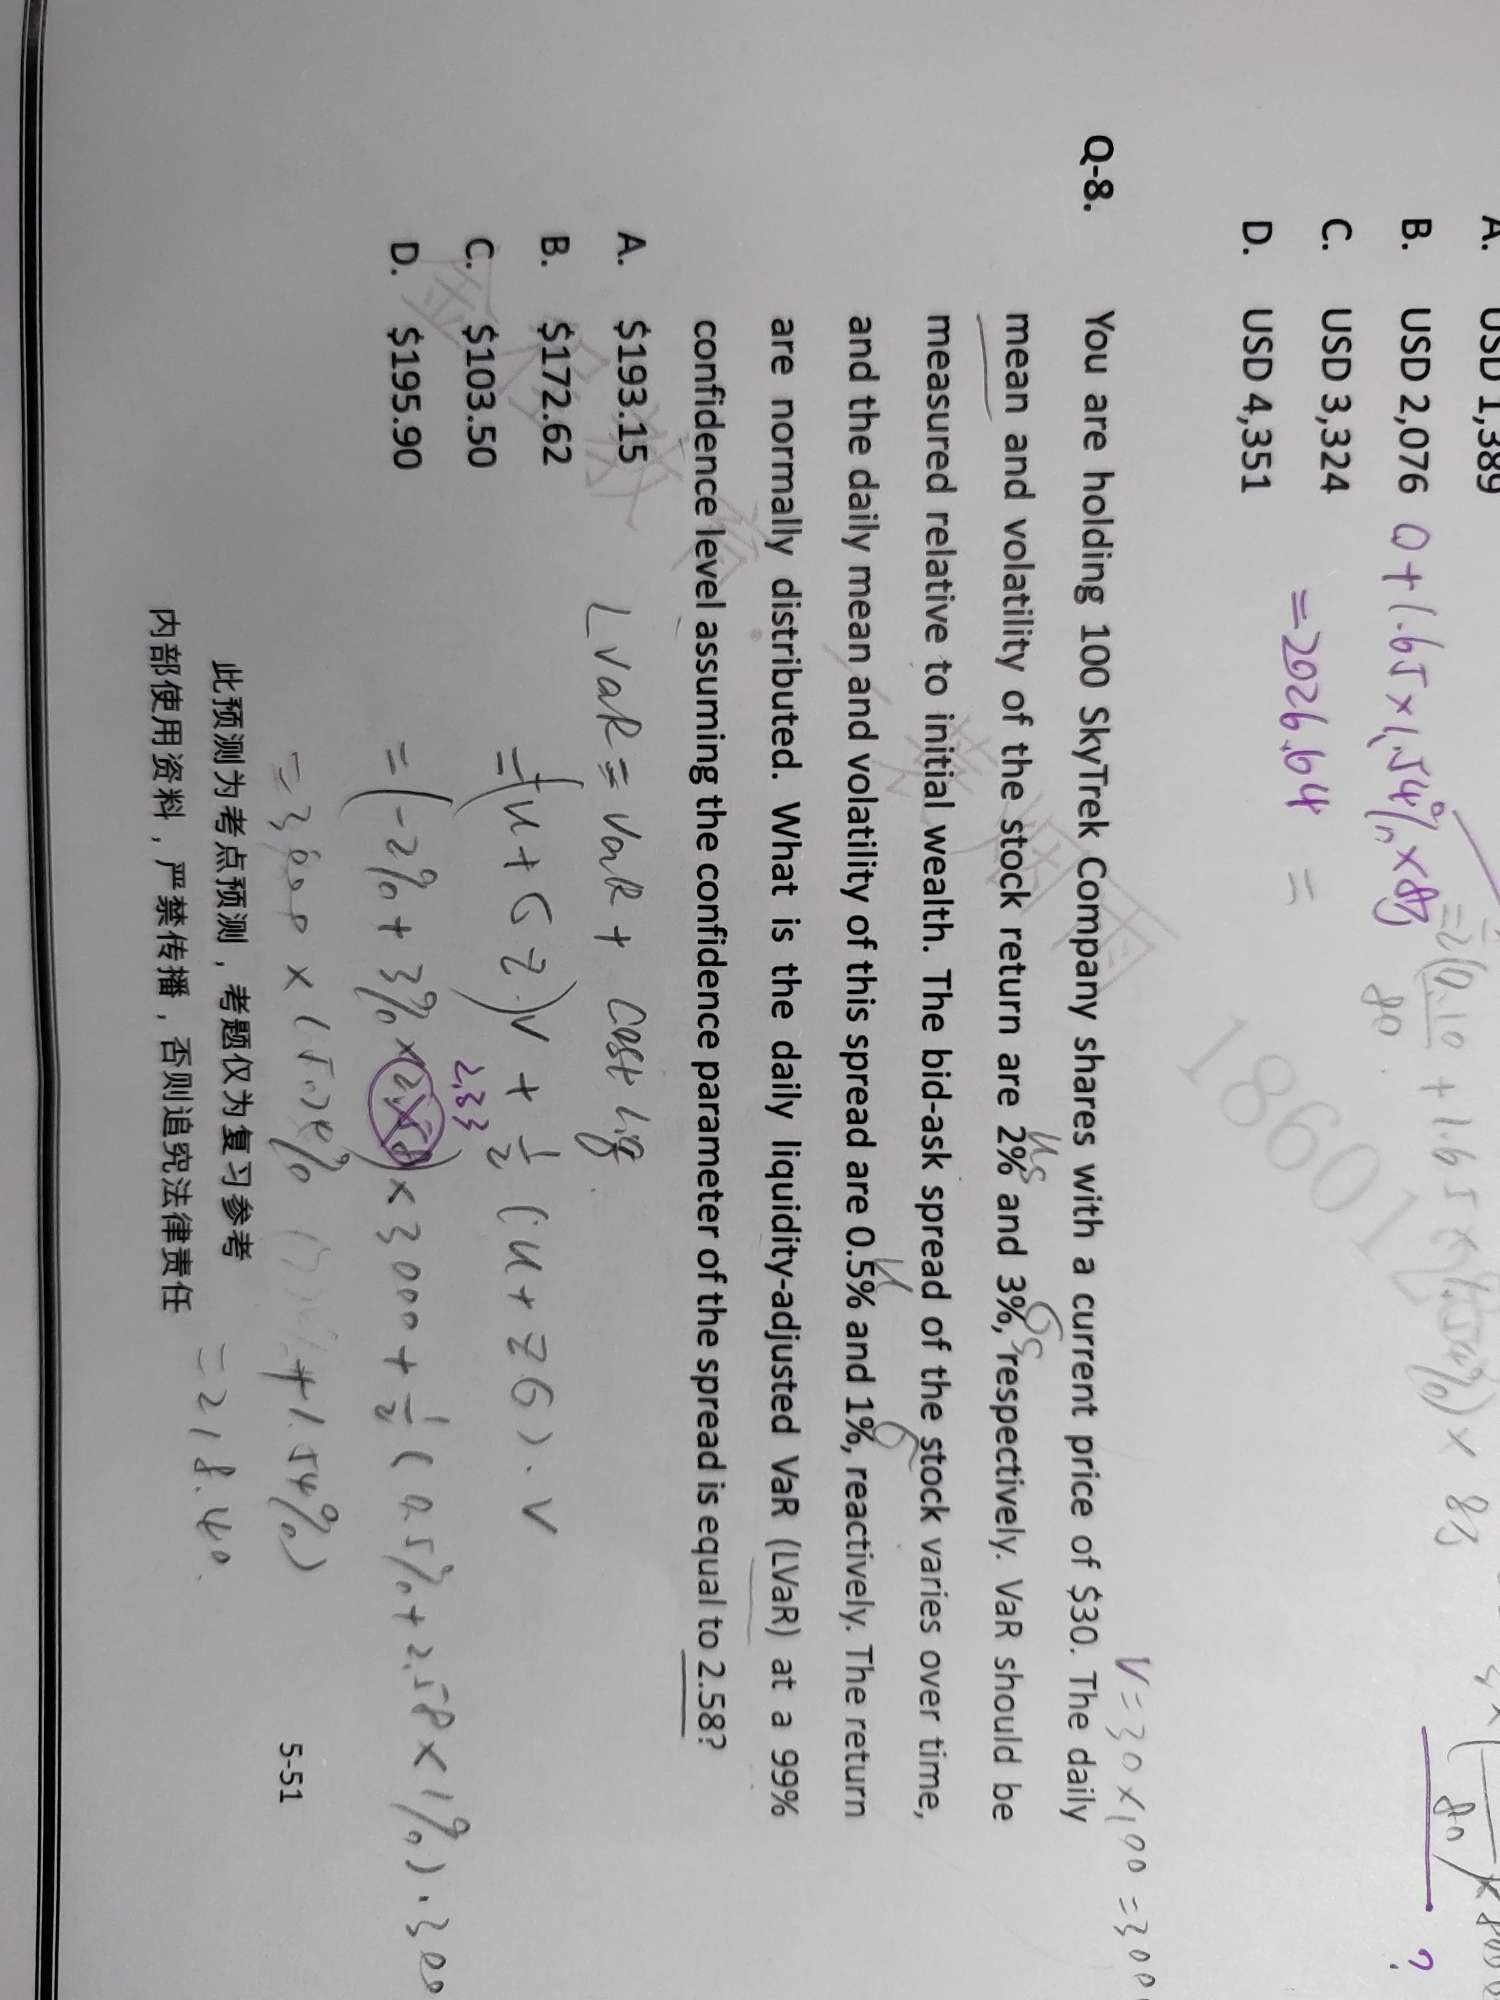 A. USD 1,389
B. USD 2,076 0+1.65×1.54%×80
80
C. USD 3,324
=2026.64 =
D. USD 4,351
18601
V=30×100=300
Q-8. You are holding 100 SkyTrek Company shares with a current price of $30. The daily
mean and volatility of the stock return are 2% and 3%, respectively. VaR should be
measured relative to initial wealth. The bid-ask spread of the stock varies over time,
and the daily mean and volatility of this spread are 0.5% and 1%, reactively. The return
are normally distributed. What is the daily liquidity-adjusted VaR (LVaR) at a 99%
confidence level assuming the confidence parameter of the spread is equal to 2.58?
A. $193.15
B. $172.62
C. $103.50
D. $195.90
LVaR = VaR + Cost Liq.
=(u+σz)V + 1/2 (u+zσ).V
2.33
=(-2%+3%×2.58)×3000+1/2(0.5%+2.58×1%).300
=218.40.
此预测为考点预测，考题仅为复习参考
内部使用资料，严禁传播，否则追究法律责任
5-51